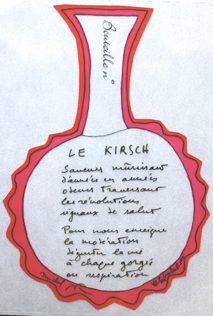 Bouteille n°
LE KIRSCH
Saveurs mûrissant
d'années en années
odeurs traversant
les révolutions
signaux de salut
Pour nous enseigner
la modération
déguster la vie
à chaque gorgée
ou respiration